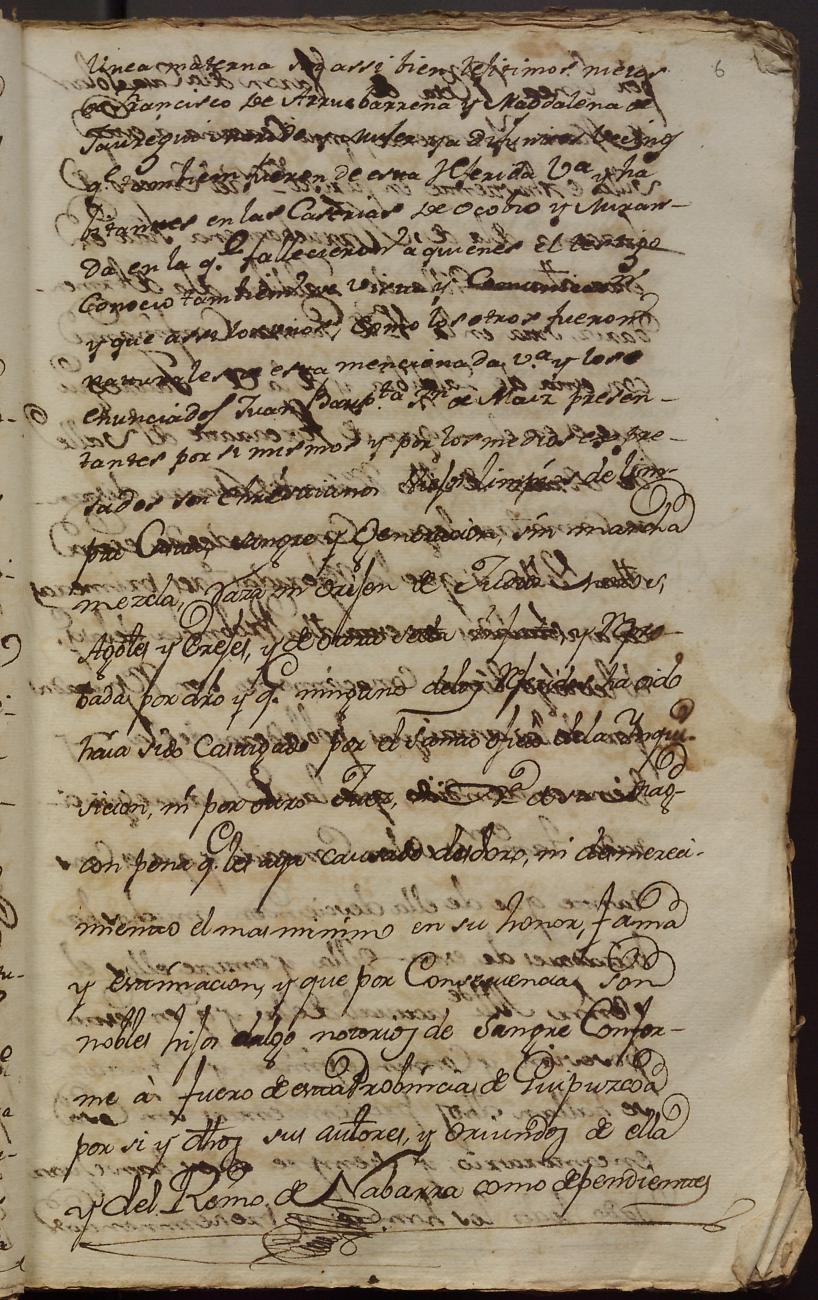 6
linea materna y assi bien lexitimos nietos
de Francisco de Arruebarrena y Maddalena de
Jauregui marido y muler ya difuntos Vecinos
q.e tambien fueron de esta referida V.a y ha
bitantes en las Caserias de Ocobio y Miran-
da en la q.e fallecieron a quienes el testigo
Conocio tambien de vista y Comunicacion
y que assi los unos, Como los otros fueron
naturales de esta mencionada v.a y los
enunciados Juan Baup.ta de Maiz presen-
tantes por si mismos y por los medios expre-
sados son christianos viejos limpios de lim-
pia Casta, sangre y Generacion, sin mancha
mezcla, raza ni orijen de Judios, Moros,
Agotes y Erejes, y de otra secta infecta, y Repro-
bada por dro y q.e ninguno delos Referidos ha sido
haia sido Castigado por el santo oficio dela Ynqui-
sicion, ni por otro Juez,
con pena q.e les aya causado desdoro, ni desmereci-
miento el mas minimo en su honor, fama
y estimacion, y que por Consequencia son
nobles hijos dalgo notorios de Sangre Confor-
me à fuero de esta Probincia de Guipuzcoa
por si y dhos sus autores, y Oriundos de ella
y del Reino de Nabarra como dependientes